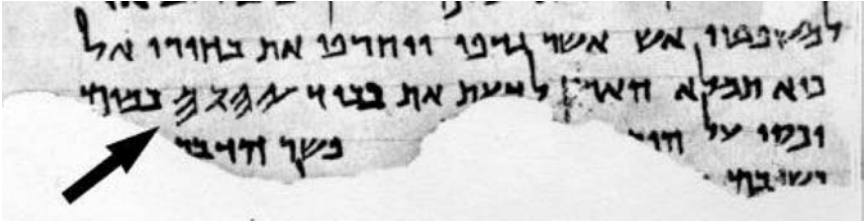 למשפטי אש אשר גדפו ויחרפו את בחירי אל
כיא תמלא הארץ לדעת את כבוד 𐤉𐤄𐤅𐤄 כמים
יכסו על פשר הדבר